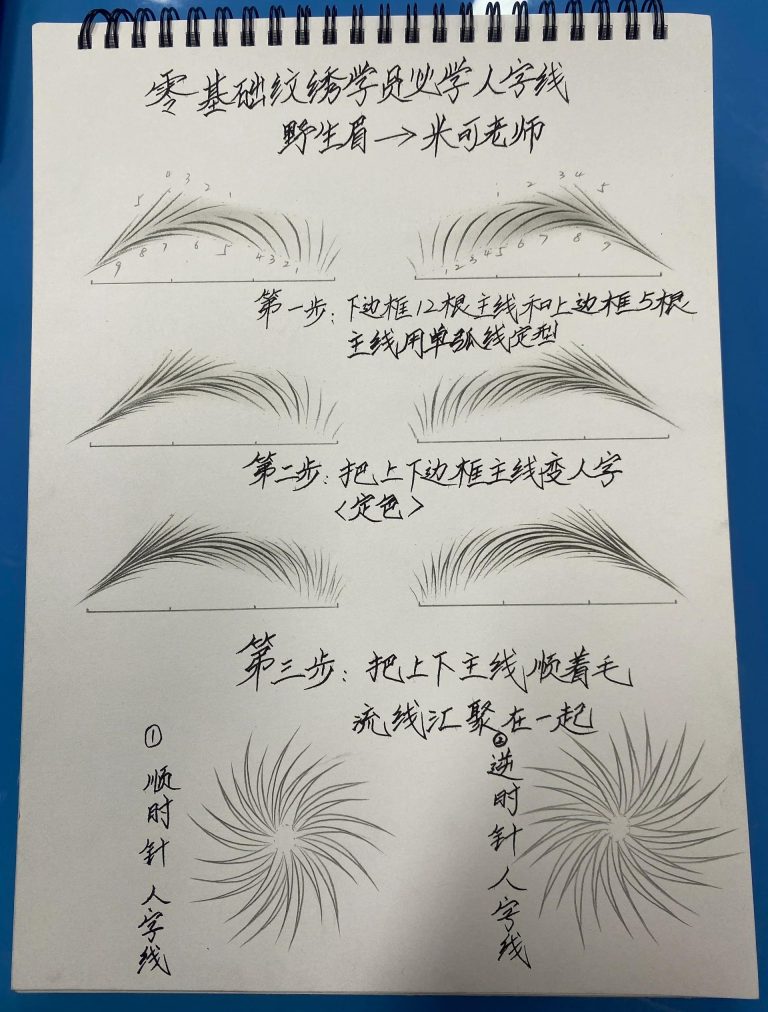 零基础纹绣学员必学人字线
野生眉→米可老师
5 4 3 2 1
9 8 7 6 5 4 3 2 1
1 2 3 4 5
1 2 3 4 5 6 7 8 9
第一步:下边框12根主线和上边框5根
主线用单弧线定型
第二步:把上下边框主线变人字
<定色>
第三步:把上下主线顺着毛
流线汇聚在一起
① 顺时针人字线
② 逆时针人字线